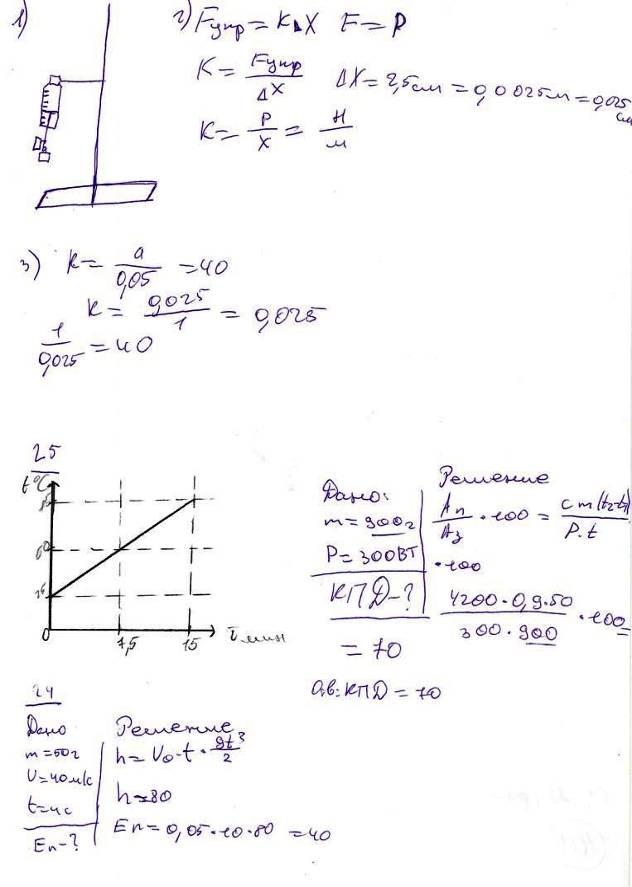 1)
2) Fупр = K ΔX F = P
K = Fупр / ΔX
ΔX = 2,5 см = 0,0025 м = 0,025 см
K = P / X = Н / м
3) K = a / 0,05 = 40
K = 0,025 / 1 = 0,025
1 / 0,025 = 40
25
t°C
0 7,5 15 τ мин
Дано:
m = 900 г
P = 300 ВТ
КПД - ?
Решение
Aп / Aз · 100 = cm(t2-t1) / P·t
· 100
4200 · 0,9 · 50 / 300 · 900 · 100 =
= 70
Отв: КПД = 70
24
Дано
m = 50 г
V = 40 м/с
t = 4 с
Eп - ?
Решение
h = V0 · t · gt³ / 2
h = 80
Eп = 0,05 · 10 · 80 = 40